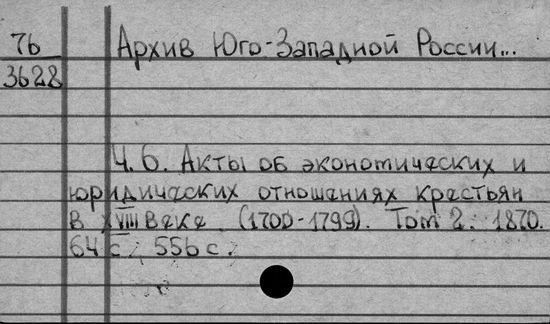 76 Архив Юго-Западной России...
3628
Ч. 6. Акты об экономических и
юридических отношениях крестьян
в XVIII веке (1700-1799). Том 2. 1870.
64 с; 556 с;